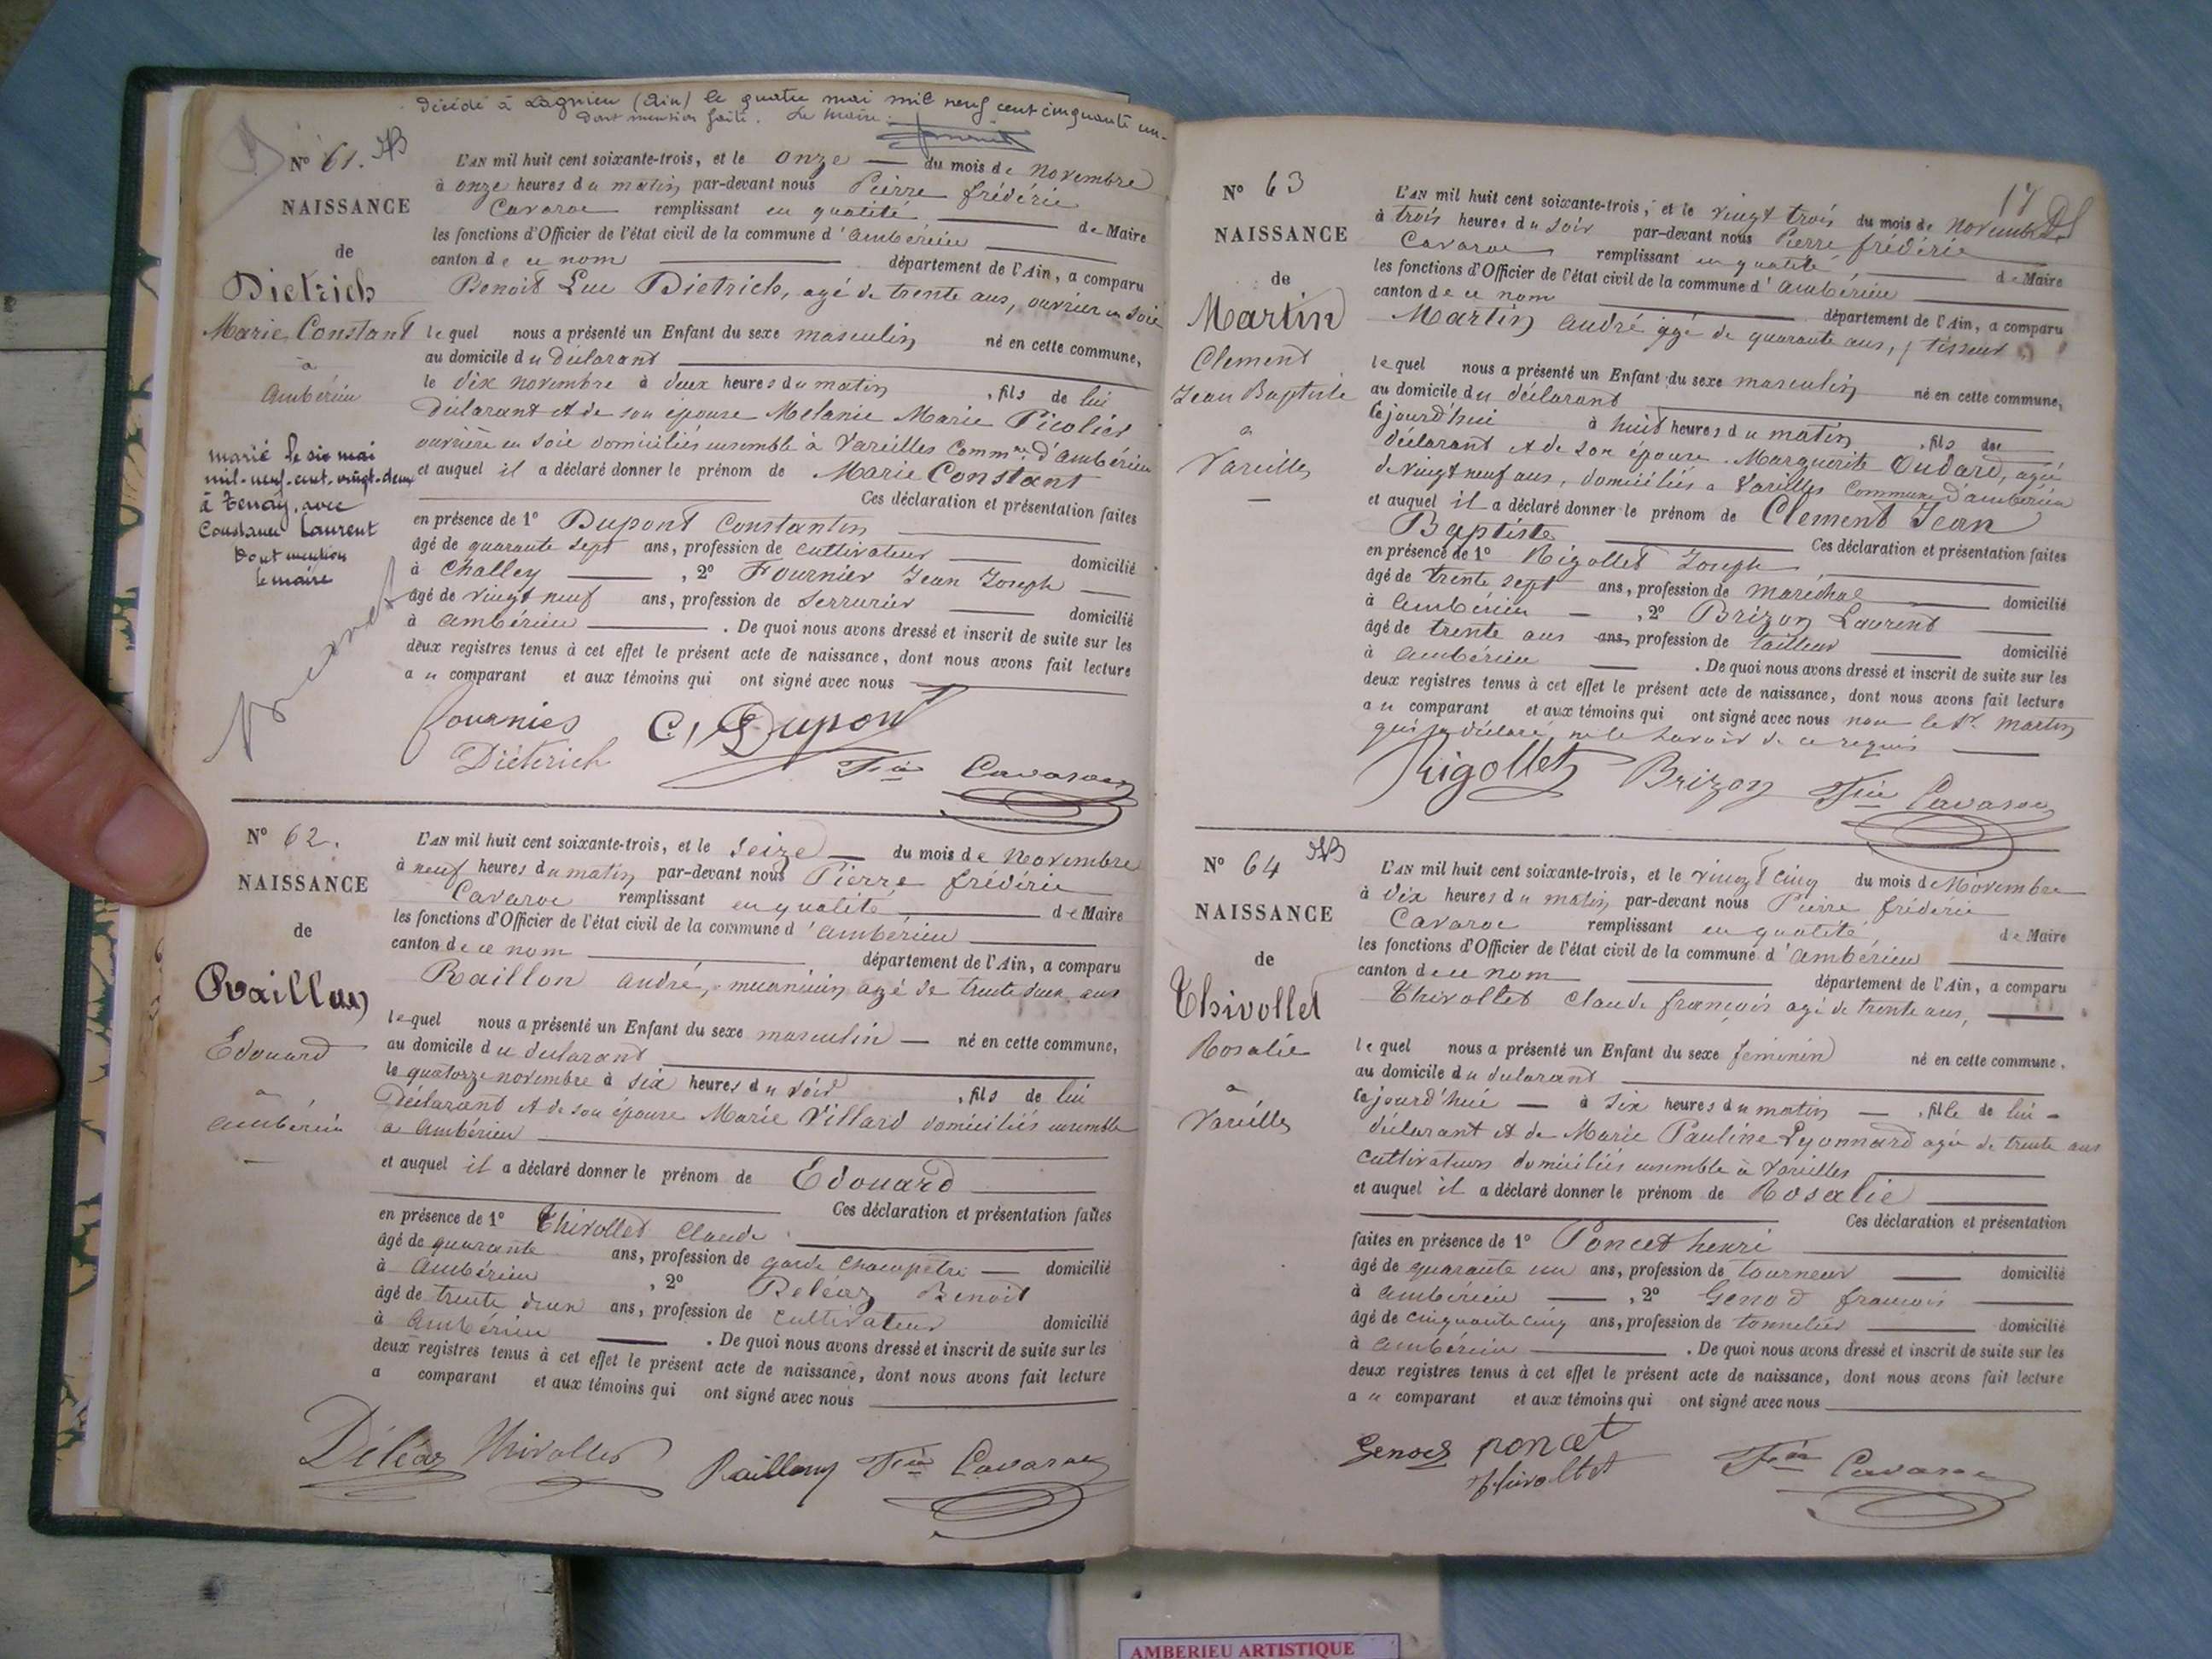 Décédé à Lagnieu (Ain) le quatre mai mil neuf cent cinquante un.
Dont mention faite. Le Maire.
N° 61.
NAISSANCE
de
Dietrich
Marie Constant
à
Ambérieu
marié le six mai
mil-neuf-cent-vingt-deux
à Tenay, avec
Constance Laurent
Dont mention
le maire
L'AN mil huit cent soixante-trois, et le onze du mois de Novembre
à onze heures du matin par-devant nous Pierre frédéric
Cavaroc remplissant en qualité de Maire
les fonctions d'Officier de l'état civil de la commune d'ambérieu
canton de ce nom département de l'Ain, a comparu
Benoit Luc Dietrich, agé de trente ans, ouvrier en soie
lequel nous a présenté un Enfant du sexe masculin né en cette commune,
au domicile du déclarant
le dix novembre à deux heures du matin, fils de lui
déclarant et de son épouse Melanie Marie Picolier
ouvrière en soie domiciliés ensemble à Vareilles Commne d'ambérieu
et auquel il a déclaré donner le prénom de Marie Constant
Ces déclaration et présentation faites
en présence de 1° Dupont Constantin
âgé de quarante sept ans, profession de cultivateur domicilié
à Challey, 2° Fournier Jean Joseph
âgé de vingt neuf ans, profession de serrurier domicilié
à ambérieu. De quoi nous avons dressé et inscrit de suite sur les
deux registres tenus à cet effet le présent acte de naissance, dont nous avons fait lecture
au comparant et aux témoins qui ont signé avec nous
fournier C. Dupont
Diétrich Fic Cavaroc
N° 62.
NAISSANCE
de
Raillon
Edouard
à
ambérieu
L'AN mil huit cent soixante-trois, et le seize du mois de Novembre
à neuf heures du matin par-devant nous Pierre frédéric
Cavaroc remplissant en qualité de Maire
les fonctions d'Officier de l'état civil de la commune d'ambérieu
canton de ce nom département de l'Ain, a comparu
Raillon andré, mécanicien agé de trente deux ans
lequel nous a présenté un Enfant du sexe masculin né en cette commune,
au domicile du déclarant
le quatorze novembre à six heures du soir, fils de lui
Déclarant et de son épouse Marie Villard domiciliés ensemble
a ambérieu
et auquel il a déclaré donner le prénom de Edouard
Ces déclaration et présentation faites
en présence de 1° Thivollet Claude
âgé de quarante ans, profession de garde champêtre domicilié
à Ambérieu, 2° Deléaz Benoit
âgé de trente deux ans, profession de cultivateur domicilié
à Ambérieu. De quoi nous avons dressé et inscrit de suite sur les
deux registres tenus à cet effet le présent acte de naissance, dont nous avons fait lecture
a comparant et aux témoins qui ont signé avec nous
Déléaz Thivollet Raillon Fic Cavaroc
17
N° 63
NAISSANCE
de
Martin
Clement
Jean Baptiste
à
Vareilles
L'AN mil huit cent soixante-trois, et le vingt trois du mois de Novembre
à trois heures du soir par-devant nous Pierre frédéric
Cavaroc remplissant en qualité de Maire
les fonctions d'Officier de l'état civil de la commune d'ambérieu
canton de ce nom département de l'Ain, a comparu
Martin andré âgé de quarante ans, tisseur
lequel nous a présenté un Enfant du sexe masculin né en cette commune,
au domicile du déclarant
cejourd'hui à huit heures du matin, fils de
déclarant et de son épouse Marguerite Oudard, agée
de vingt neuf ans, domiciliés a Vareilles Commune d'ambérieu
et auquel il a déclaré donner le prénom de Clement Jean
Baptiste Ces déclaration et présentation faites
en présence de 1° Rigollet Joseph
âgé de trente sept ans, profession de maréchal domicilié
à Ambérieu, 2° Brizon Laurent
âgé de trente ans ans, profession de tailleur domicilié
à Ambérieu. De quoi nous avons dressé et inscrit de suite sur les
deux registres tenus à cet effet le présent acte de naissance, dont nous avons fait lecture
au comparant et aux témoins qui ont signé avec nous non le Sr Martin
qui a déclaré ne le savoir de ce requis
Rigollet Brizon Fic Cavaroc
N° 64
NAISSANCE
de
Thivollet
Rosalie
à
Vareilles
L'AN mil huit cent soixante-trois, et le vingt cinq du mois de Novembre
à dix heures du matin par-devant nous Pierre frédéric
Cavaroc remplissant en qualité de Maire
les fonctions d'Officier de l'état civil de la commune d'ambérieu
canton de ce nom département de l'Ain, a comparu
Thivollet Claude françois agé de trente ans,
lequel nous a présenté un Enfant du sexe feminin né en cette commune.
au domicile du déclarant
cejourd'hui à six heures du matin, fille de lui
déclarant et de Marie Pauline Lyonnard agée de trente ans
cultivateurs domiciliés ensemble à Vareilles
et auquel il a déclaré donner le prénom de Rosalie
Ces déclaration et présentation
faites en présence de 1° Poncet henri
âgé de quarante un ans, profession de tourneur domicilié
à ambérieu, 2° Genod francois
âgé de cinquante cinq ans, profession de tonnelier domicilié
à ambérieu. De quoi nous avons dressé et inscrit de suite sur les
deux registres tenus à cet effet le présent acte de naissance, dont nous avons fait lecture
au comparant et aux témoins qui ont signé avec nous
Genod poncet
thivollet Fic Cavaroc
AMBERIEU ARTISTIQUE